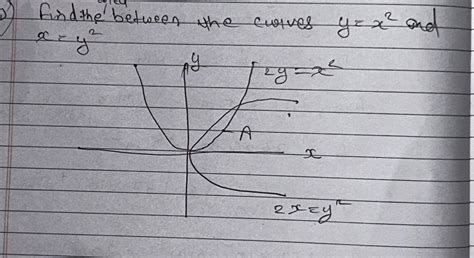 Find the between the curves y = x² and
x = y²
y
2y = x²
A
x
2x = y²